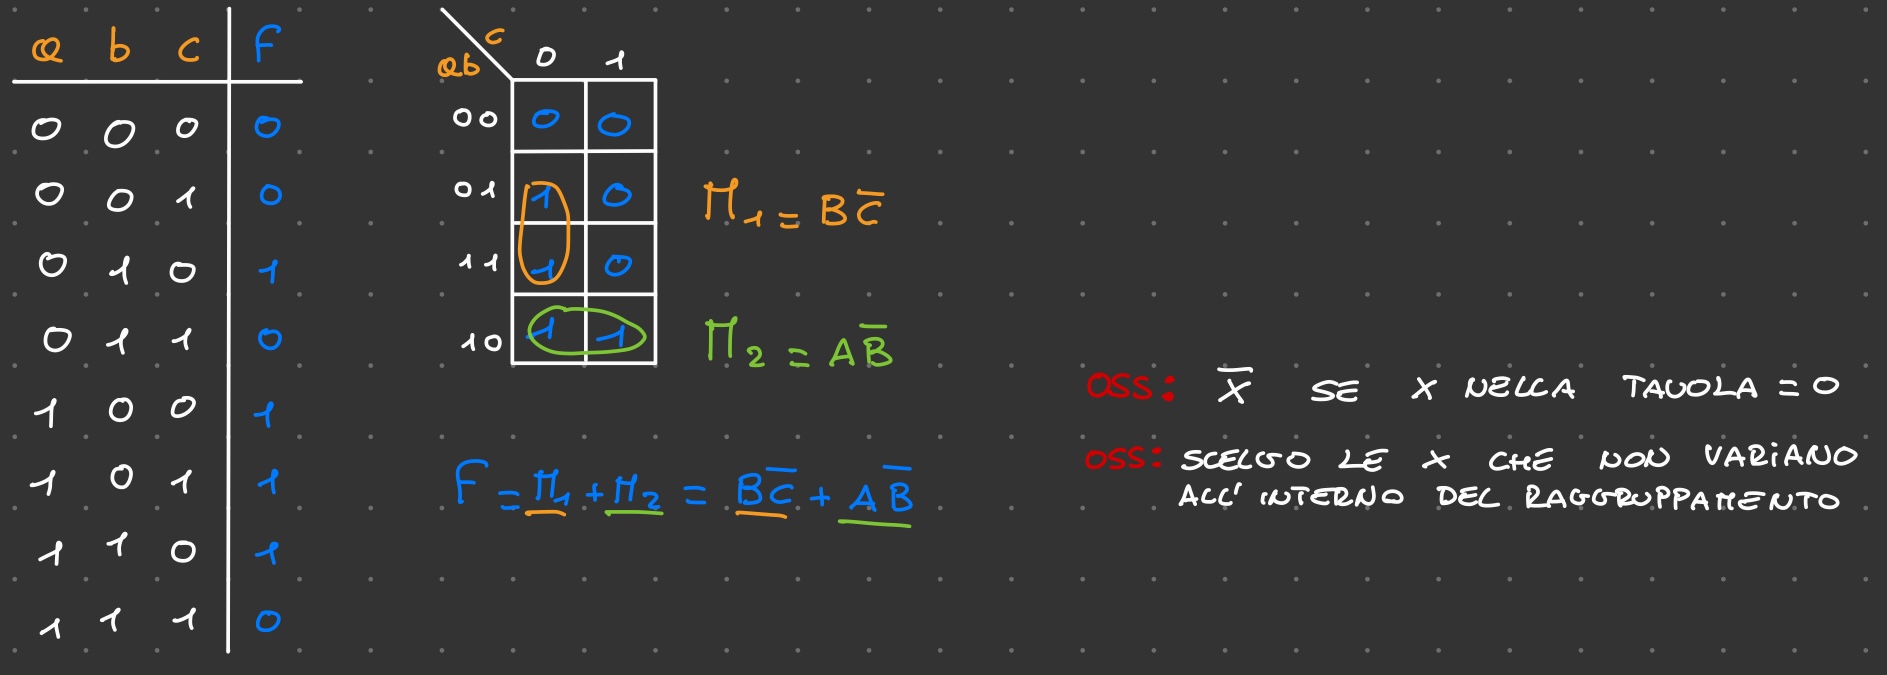 a b c F
0 0 0 0
0 0 1 0
0 1 0 1
0 1 1 0
1 0 0 1
1 0 1 1
1 1 0 1
1 1 1 0
c
ab 0 1
00 0 0
01 1 0
11 1 0
10 1 1
M1 = BC̅
M2 = AB̅
F = M1 + M2 = BC̅ + AB̅
OSS: X̅ SE X NELLA TAVOLA = 0
OSS: SCELGO LE X CHE NON VARIANO
ALL' INTERNO DEL RAGGRUPPAMENTO